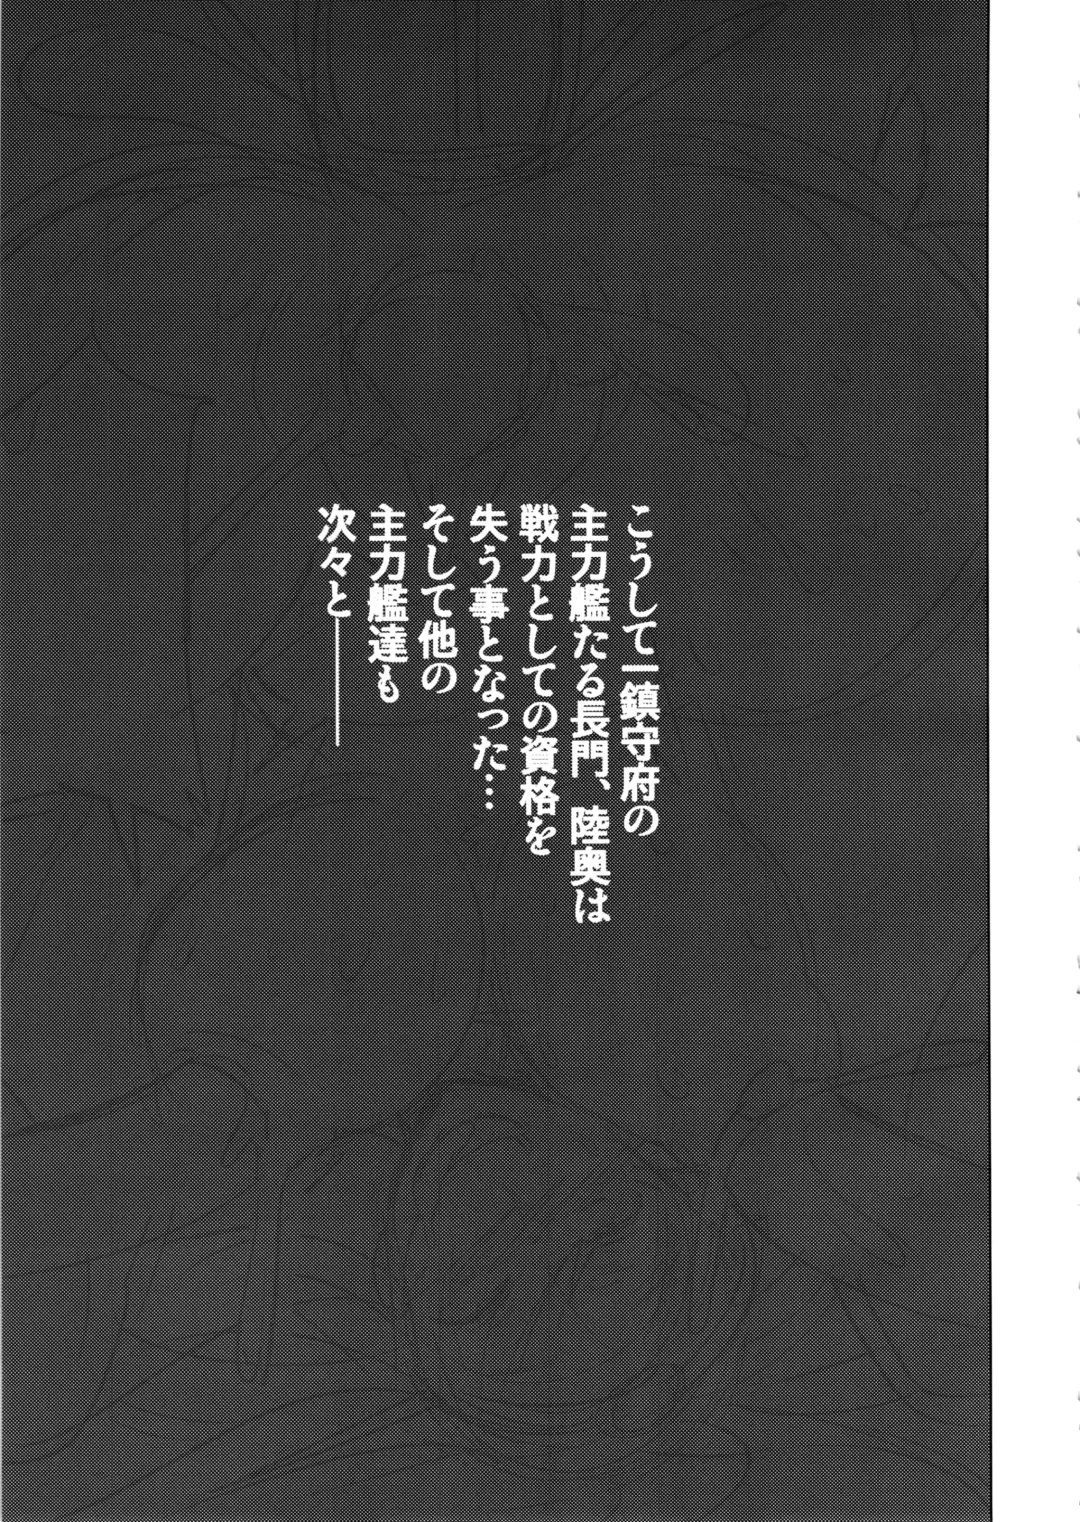 こうして一鎮守府の
主力艦たる長門、陸奥は
戦力としての資格を
失う事となった…
そして他の
主力艦達も
次々と――